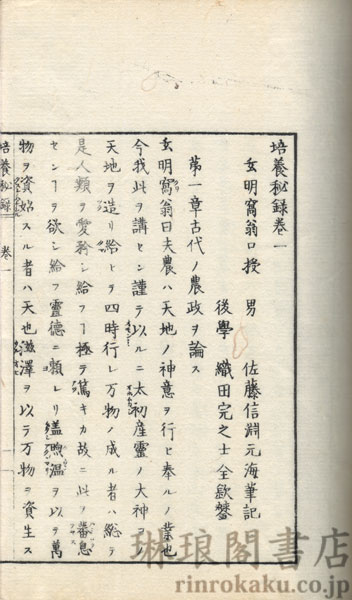 培養秘録巻一
玄明窩翁口授 男 佐藤信淵元海筆記
後學 織田完之士全
第一章古代ノ農政ヲ論ス
玄明窩翁曰夫農ハ天地ノ神意ヲ行ヒ奉ルノ業也
今我此ヲ講セン謹テ以ルニ太初産靈ノ大神ヨ
天地ヲ造リ給ヒヲ四時行レ万物ノ成ル者ハ総テ
是人類ヲ愛矜シ給フ極テ篤キカ故ニ此蕃息
センヿヲ欲シ給フ靈德ニ頼レリ蓋煦温ヲ以ヲ萬
物ヲ資始スル者ハ天也滋澤ヲ以テ万物ニ資生ス
培養秘録 巻一
琳琅閣書店
rinrokaku.co.jp